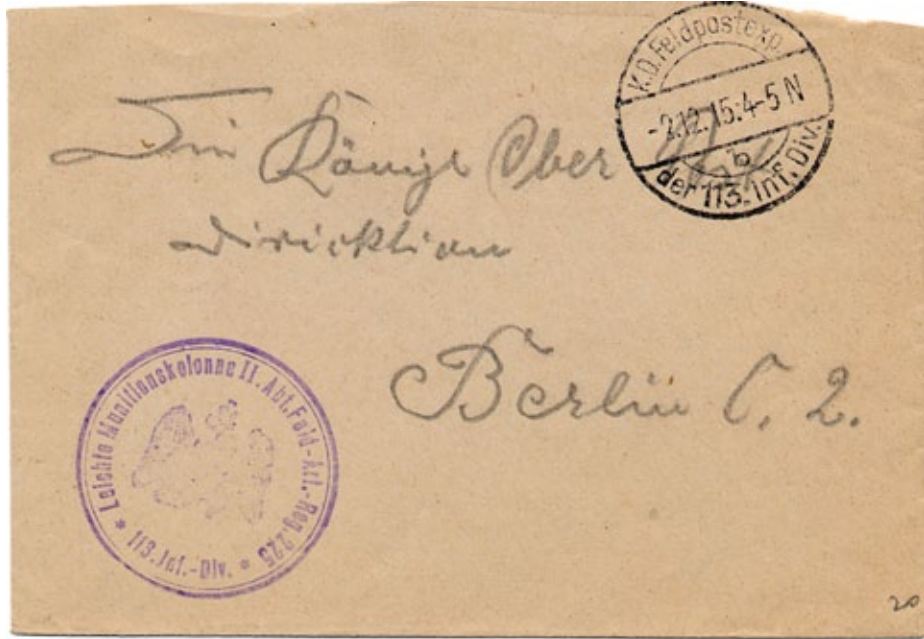 K.D. Feldpostexp.
-2.12.15.4-5 N
b
der 113. Inf. Div.
Königl Ober
Direcktion
Berlin C. 2.
* Leichte Munitionskolonne II. Abt. Feld-Art.-Reg. 225 *
113. Inf.-Div.
20